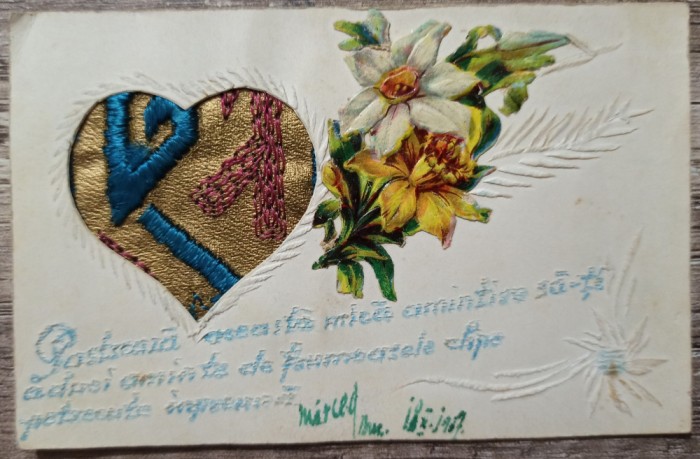 Păstrează această mică amintire să-ți
aduci aminte de frumoasele clipe
petrecute inpreună
Marcel
Buc. 18 XI-1907.